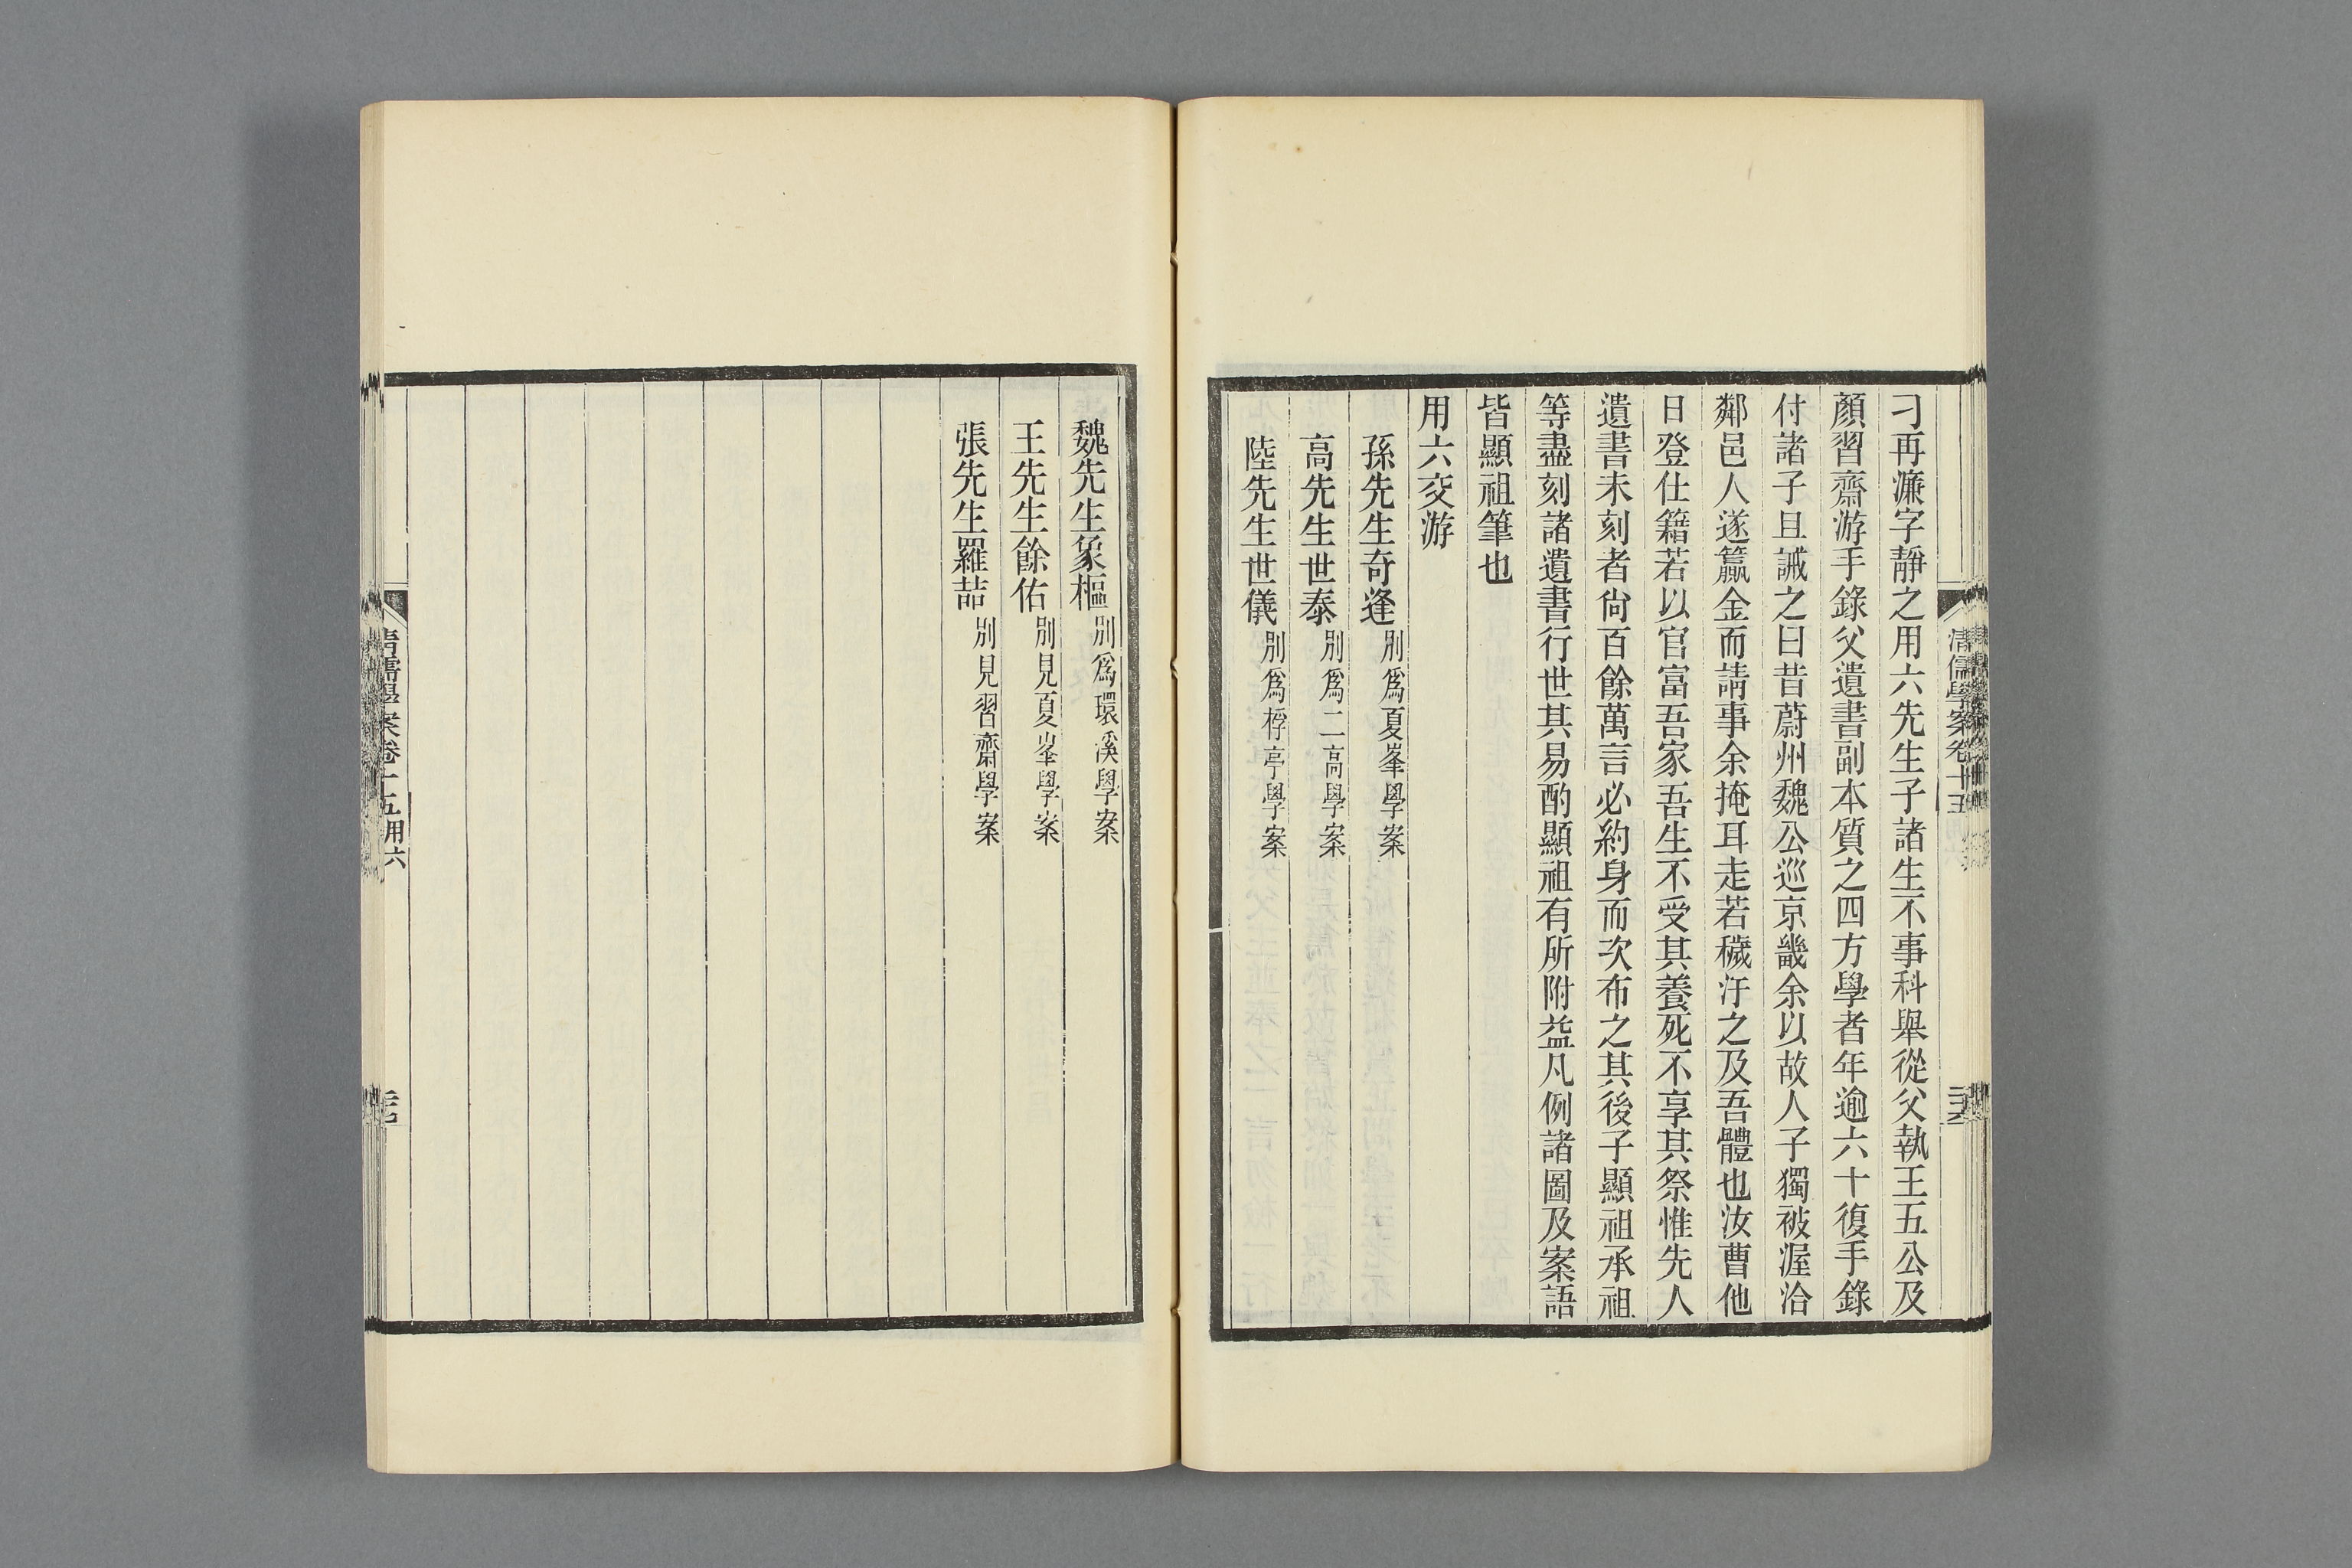 清儒學案卷十五
刁再濂字靜之用六先生子諸生不事科舉從父執王五公及
顏習齋游手錄父遺書副本質之四方學者年逾六十復手錄
付諸子且誡之曰昔蔚州魏公巡京畿余以故人子獨被渥洽
鄰邑人遂籝金而請事余掩耳走若穢汙之及吾體也汝曹他
日登仕籍若以官富吾家吾生不受其養死不享其祭惟先人
遺書未刻者尙百餘萬言必約身而次布之其後子顯祖承祖
等盡刻諸遺書行世其易酌顯祖有所附益凡例諸圖及案語
皆顯祖筆也
用六交游
孫先生奇逢別爲夏峯學案
高先生世泰別爲二高學案
陸先生世儀別爲桴亭學案
魏先生象樞別爲環溪學案
王先生餘佑別見夏峯學案
張先生羅喆別見習齋學案
清儒學案卷十五 用六